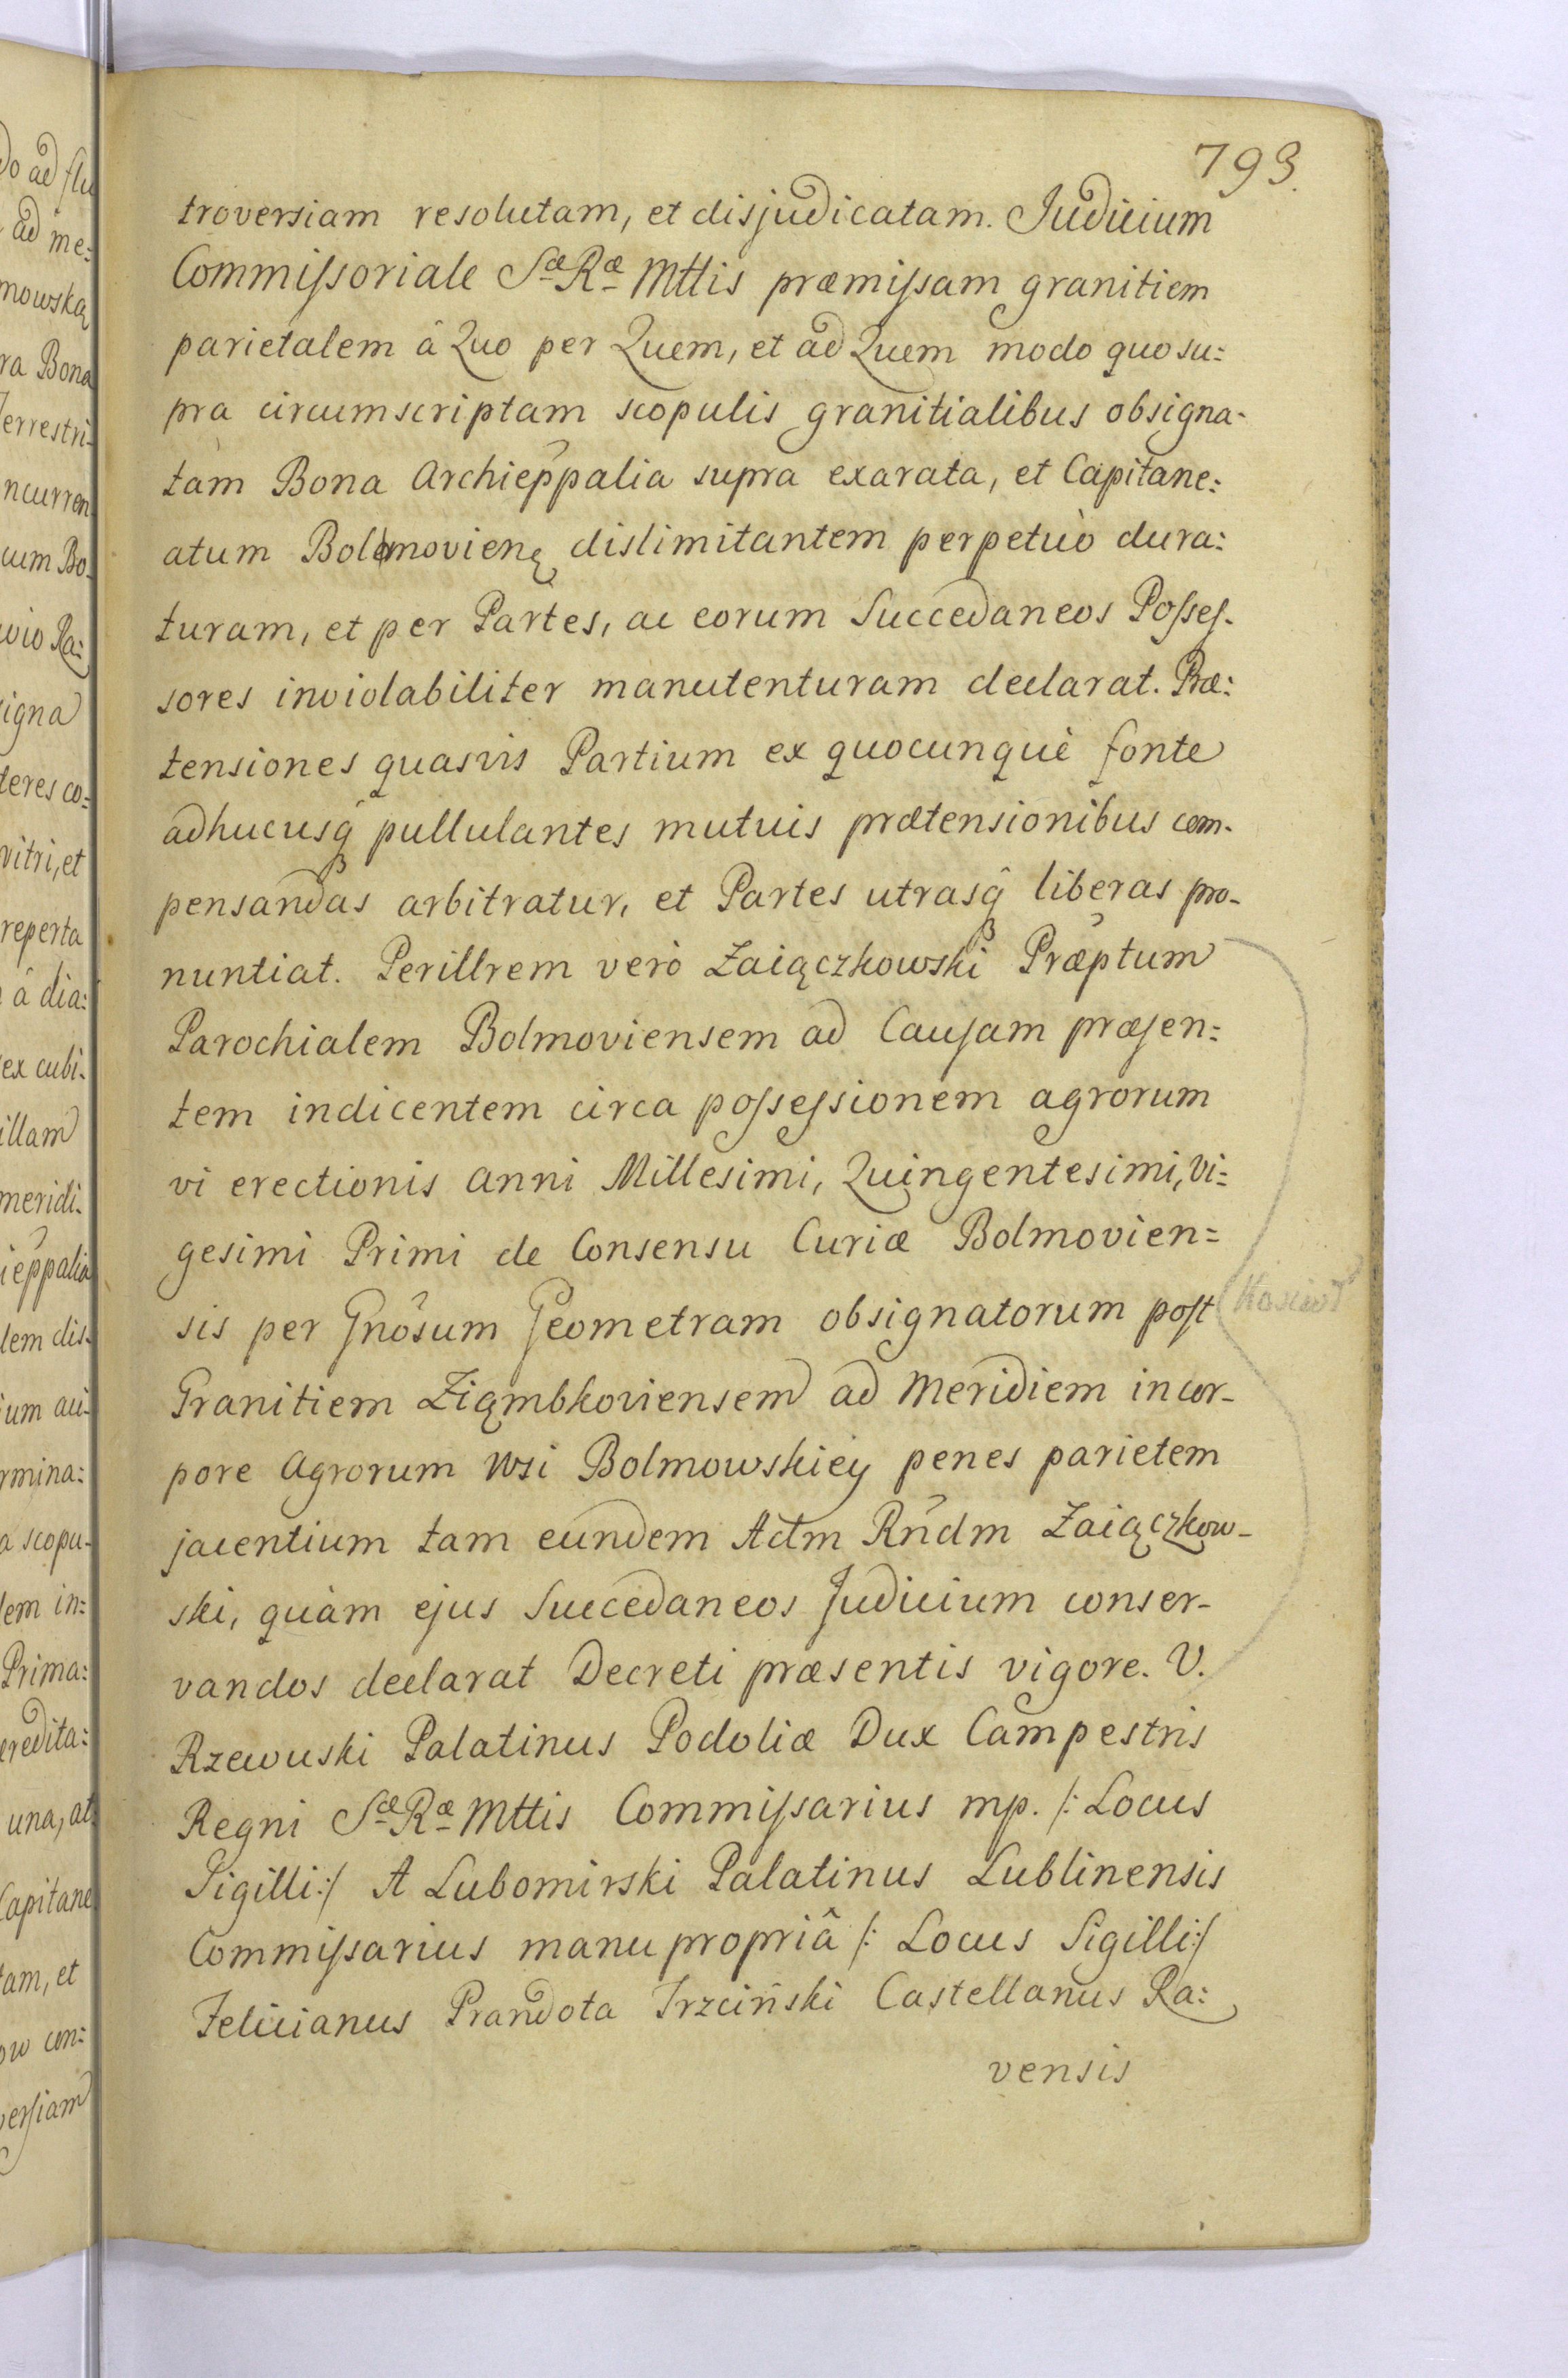 793.
troversiam resolutam, et disjudicatam. Judicium
Commissoriale Sæ Ræ Mttis præmissam granitiem
parietalem â Quo per Quem, et ad Quem modo quo su:
pra circumscriptam scopulis granitialibus obsigna-
tam Bona Archieppalia supra exarata, et Capitane:
atum Bolmovienę dislimitantem perpetuò dura:
turam, et per Partes, ac eorum Succedaneos Posses-
sores inviolabiliter manutenturam declarat. Præ:
tensiones quasvis Partium ex quocunquè fonte
adhucusq́ pullulantes mutuis prætensionibus com-
pensandas arbitratur, et Partes utrasq̂ liberas pro-
nuntiat. Perillrem verò Zaiączkowski Præptum
Parochialem Bolmoviensem ad Causam præsen:
tem indicentem circa possessionem agrorum
vi erectionis anni Millesimi, Quingentesimi, Vi=
gesimi Primi de Consensu Curiæ Bolmovien=
sis per Gnôsum Geometram obsignatorum post
Granitiem Ziąmbkoviensem ad Meridiem in cor-
pore Agrorum Wsi Bolmowskiey penes parietem
jacentium tam eundem Adm Rndm Zaiączkow-
ski, quàm ejus Succedaneos Judicium conser-
vandos declarat Decreti præsentis vigore. V.
Rzewuski Palatinus Podoliæ Dux Campestris
Regni Sæ Ræ Mttis Commissarius mp. /: Locus
Sigilli :/ A Lubomirski Palatinus Lublinensis
Commissarius manu propriâ /: Locus Sigilli :/
Felicianus Prandota Trzciński Castellanus Ra:
vensis
do ad flu
ad me:
mowską
ra Bona
Terrestri-
ncurren
cum Bo-
uvio Ra:
signa
teres co:
vitri, et
reperta
â dia:
ex cubi-
illam
meridi-
ieppalia
lem dis-
rmina:
a scopu-
lem in:
Prima:
eredita:
una, at
Capitane
tam, et
ow con:
versiam